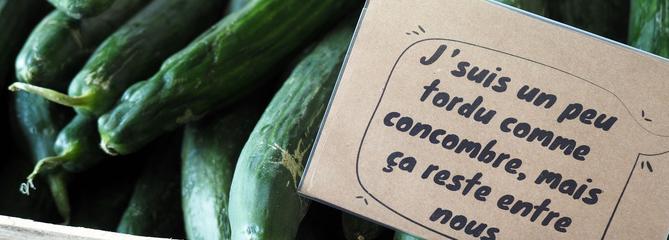 J'suis un peu
tordu comme
concombre, mais
ça reste entre
nous